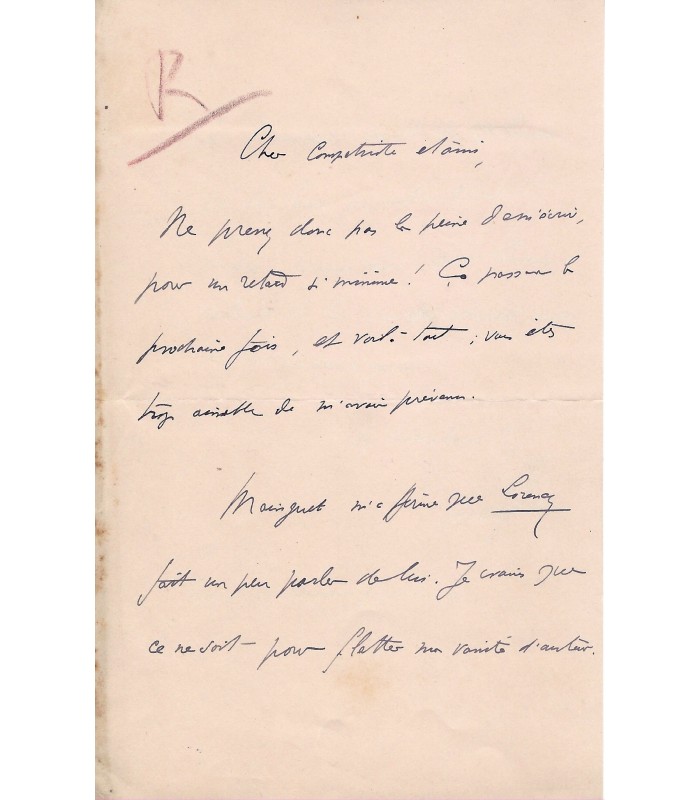 R
Cher Compatriote et ami,
Ne prenez donc pas la peine de m'écrire,
pour un retard si minime ! Ça passera la
prochaine fois, et voilà tout ; vous êtes
trop aimable de m'avoir prévenu.
Mainguet m'affirme que Lorenzy
fait un peu parler de lui. Je crains que
ce ne soit pour flatter ma vanité d'auteur.